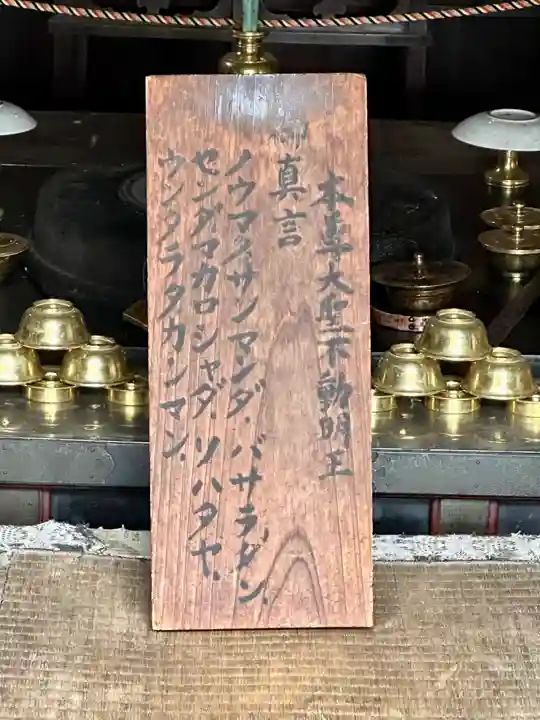 本尊大聖不動明王
御真言
ノウマクサンマンダ.バサラダン.
センダマカロシャダ.ソハタヤ.
ウンタラタカンマン.